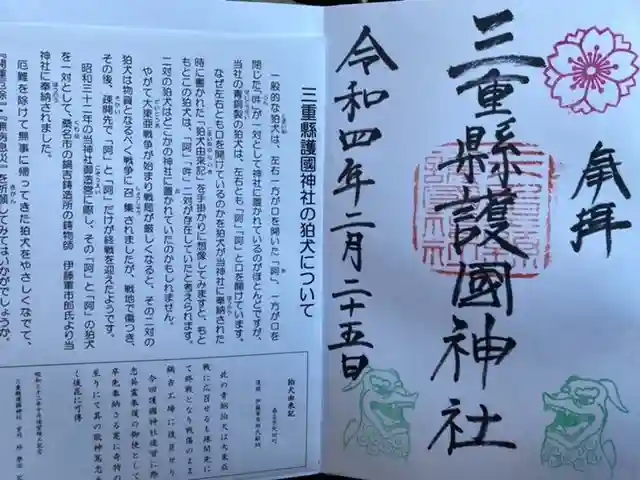 奉拝
三重縣護國神社
令和四年二月二十五日
三重縣護國神社の狛犬について
一般的な狛犬は、左右一方が口を開いた「阿」、一方が口を
閉じた「吽」が一対として神社に置かれているのがほとんどですが、
当社の青銅製の狛犬は、左右とも「阿」「阿」と口を開けています。
なぜ左右とも口を開けているのかを狛犬が当神社に奉納された
時に書かれた「狛犬由来記」を手掛かりに想像してみますと、もと
もとこの「阿」は、「阿」「吽」二対が存在していたと考えられます。
二対の狛犬はどこかの神社に置かれていたのかもしれません。
やがて大東亜戦争が始まり戦局が厳しくなると、その二対の
狛犬は物資となるべく戦争に召集されましたが、戦地で傷つき、
その後、疎開先で「阿」と「阿」だけが終戦を迎えたようです。
昭和三十二年の当神社御造営に際し、その「阿」と「阿」の狛犬
を一対として、桑名市の鍋吉鋳造所の鋳物師 伊藤軍市郎氏より当
神社に奉納されました。
厄難を除けて無事に帰ってきた狛犬をやさしくなでて、
狛犬由来記
此の青銅狛犬は大東亜
戦に応召せるも疎開先に
て終戦となり戦傷のまま
鍋吉工場に復員せり
今回護國神社造営に際